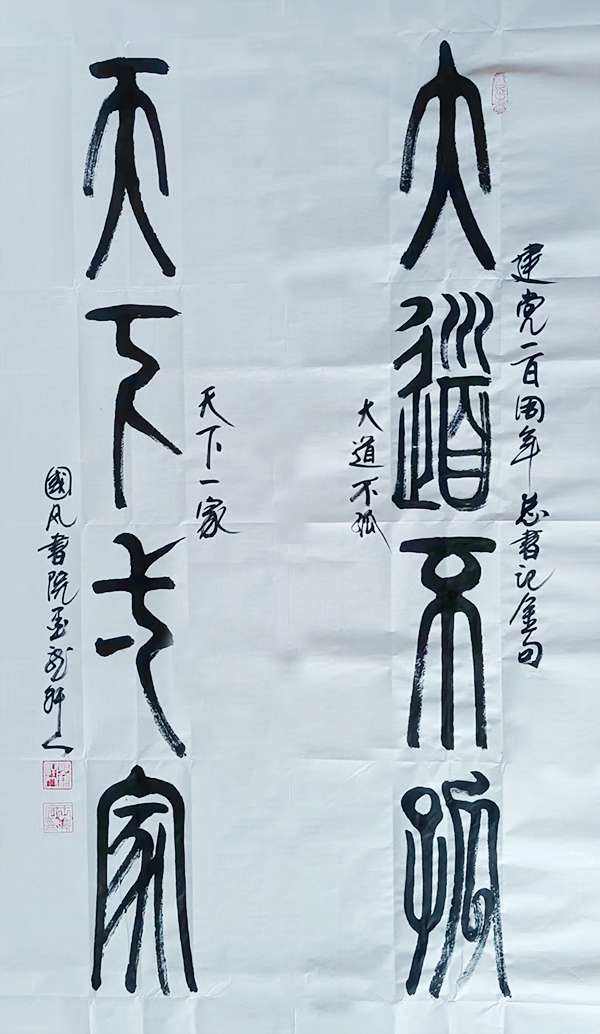 建党一百周年总書记金句
大道不孤
大道不孤
天下一家
天下一家
國风書院